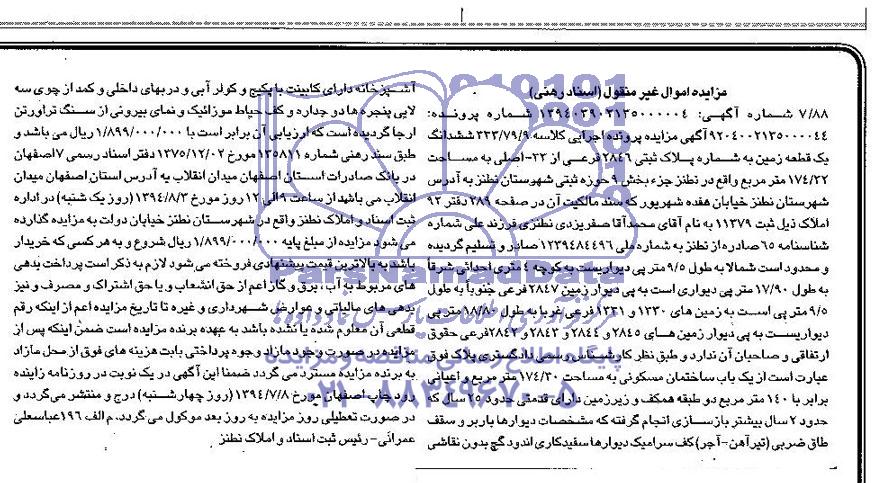 مزایده اموال غیر منقول (اسناد رهنی)
۷/۸۸ شماره آگهی: ۱۳۹۴۰۳۹۰۲۱۳۵۰۰۰۰۰۴ شماره پرونده:
۹۲۰۴۰۰۲۱۳۵۰۰۰۰۴۴ آگهی مزایده پرونده اجرایی کلاسه ۳۳۳/۷۹/۹ ششدانگ
یک قطعه زمین به شماره پلاک ثبتی ۲۸۴۶ فرعی از ۲۳- اصلی به مساحت
۱۷۴/۲۲ متر مربع واقع در نطنز جزء بخش ۹ حوزه ثبتی شهرستان نطنز به آدرس
شهرستان نطنز خیابان هفده شهریور که سند مالکیت آن در صفحه ۲۸۹ دفتر ۹۲
املاک ذیل ثبت ۱۱۳۷۹ به نام آقای محمدآقا صفریزدی نطنزی فرزند علی شماره
شناسنامه ۶۵ صادره از نطنز به شماره ملی ۱۲۳۹۴۸۴۴۹۶ صادر و تسلیم گردیده
و محدود است شمالا به طول ۹/۵ متر پی دیواریست به کوچه ۴ متری احداثی شرقاً
به طول ۱۷/۹۰ متر پی دیواری است به پی دیوار زمین ۲۸۴۷ فرعی جنوباً به طول
۹/۵ متر پی است به زمین های ۱۳۳۰ و ۱۳۳۱ فرعی غرباً به طول ۱۸/۸۰ متر پی
دیواریست به پی دیوار زمین های ۲۸۴۵ و ۲۸۴۴ و ۲۸۴۳ و ۲۸۴۲ فرعی حقوق
ارتفاقی و صاحبان آن ندارد و طبق نظر کارشناس رسمی دادگستری پلاک فوق
عبارت است از یک باب ساختمان مسکونی به مساحت ۱۷۴/۳۰ متر مربع و اعیانی
برابر با ۱۴۰ متر مربع دو طبقه همکف و زیرزمین دارای قدمتی حدود ۲۵ سال که
حدود ۲ سال بیشتر بازسازی انجام گرفته که مشخصات دیوارها باربر و سقف
طاق ضربی (تیرآهن- آجر) کف سرامیک دیوارها سفیدکاری اندود گچ بدون نقاشی
آشپزخانه دارای کابینت با پکیج و کولر آبی و دربهای داخلی و کمد از چوی سه
لایی پنجره ها دو جداره و کف حیاط موزائیک و نمای بیرونی از سنگ تراورتن
ارجا گردیده است که ارزیابی آن برابر است با ۱/۸۹۹/۰۰۰/۰۰۰ ریال می باشد و
طبق سند رهنی شماره ۱۳۵۸۱۱ مورخ ۱۳۷۵/۱۲/۰۲ دفتر اسناد رسمی ۷ اصفهان
در بانک صادرات استان اصفهان میدان انقلاب به آدرس استان اصفهان میدان
انقلاب می باشد از ساعت ۹ الی ۱۲ روز مورخ ۱۳۹۴/۸/۳ (روز یک شنبه) در اداره
ثبت اسناد و املاک نطنز واقع در شهرستان نطنز خیابان دولت به مزایده گذارده
می شود مزایده از مبلغ پایه ۱/۸۹۹/۰۰۰/۰۰۰ ریال شروع و به هر کسی که خریدار
باشد به بالاترین قیمت پیشنهادی فروخته می شود لازم به ذکر است پرداخت بدهی
های مربوط به آب، برق و گاز اعم از حق انشعاب و یا حق اشتراک و مصرف و نیز
بدهی های مالیاتی و عوارض شهرداری و غیره تا تاریخ مزایده اعم از اینکه رقم
قطعی آن معلوم شده یا نشده باشد به عهده برنده مزایده است ضمن اینکه پس از
مزایده در صورت وجود مازاد وجوه پرداختی بابت هزینه های فوق از محل مازاد
به برنده مزایده مسترد می گردد ضمنا این آگهی در یک نوبت در روزنامه زاینده
رود چاپ اصفهان مورخ ۱۳۹۴/۷/۸ (روز چهارشنبه) درج و منتشر می گردد و
در صورت تعطیلی روز مزایده به روز بعد موکول می گردد. م الف ۱۹۶ عباسعلی
عمرانی- رئیس ثبت اسناد و املاک نطنز
ParsNamadData
پایگاه اطلاع رسانی مناقصه و مزایده
۰۲۱-۸۸۳۴۹۶۷۰-۵